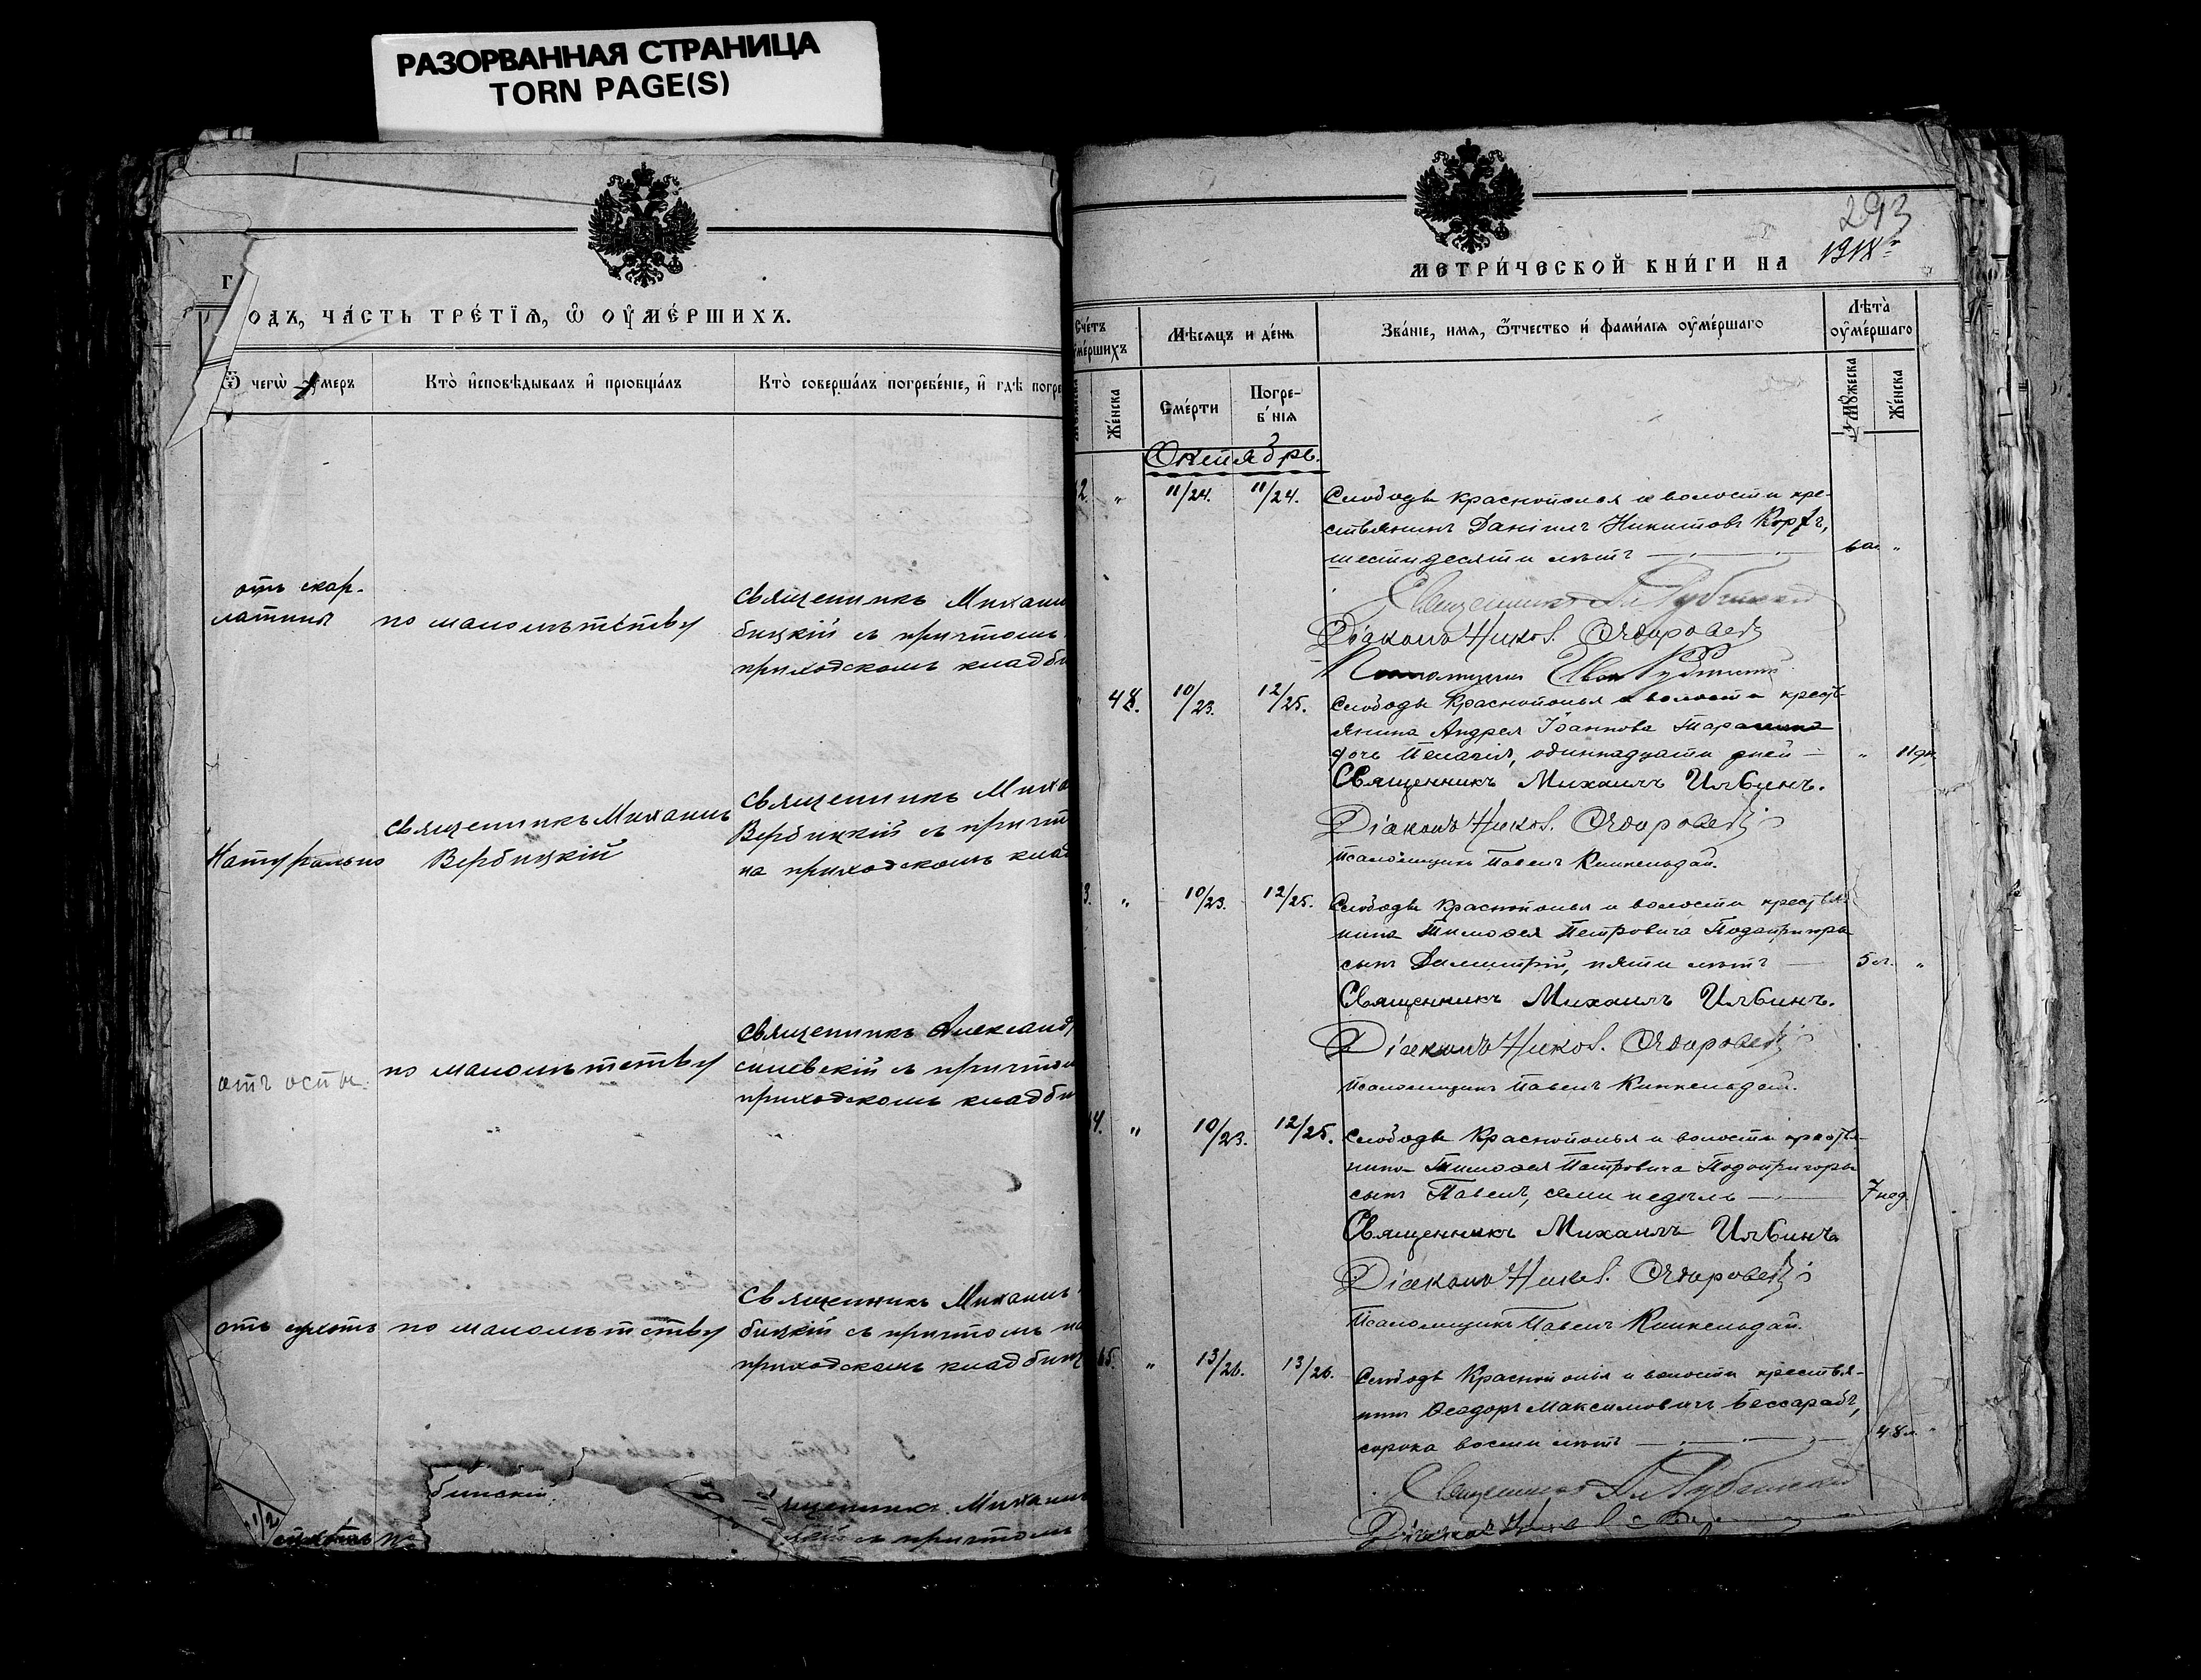 РАЗОРВАННАЯ СТРАНИЦА
TORN PAGE(S)
Г
ОДЪ, ЧА́СТЬ ТРЕ́ТЇѦ, Ѽ ОУ҆МЕ́РШИХЪ.
Ѿ чегѡ̀ умеръ
Кто̀ и҆сповѣ́дывалъ и҆ прїобща́лъ
Кто̀ соверша́лъ погребе́нїе, и҆ гдѣ̀ погре
отъ скар-
латины
по малолѣтству
Священникъ Михаил
бицкій съ причтомъ
приходскомъ кладби
Натурально
Священникъ Михаилъ
Вербицкій
Священникъ Миха
Вербицкій съ причт
на приходскомъ клад
отъ оспы
по малолѣтству
Священникъ Александ
силевскій съ причтом
приходскомъ кладби
отъ
по малолѣтству
Священникъ Михаилъ
бицкій съ причтомъ на
приходскомъ кладбищ
бинскій
щенникъ Михаил
съ причтомъ
293
МЕТРИ́ЧЕСКОЙ КНИ́ГИ НА 1918 г.
Сче́тъ
оу҆ме́ршихъ
Мѣ́сѧцъ и де́нь
Зва́нїе, имѧ, ѻ҆́тчество и҆ фами́лїѧ оу҆ме́ршагѡ
Лѣ́та
оу҆ме́ршагѡ
Же́нска
Сме́рти
Погре-
бе́нїѧ
Мꙋ́жеска
Же́нска
Октябрь.
2. " 11/24. 11/24. Слободы Краснополья и волости кре-
стьянинъ Даніилъ Никитовъ Коржъ,
шестидесяти лѣтъ — 60 "
Священникъ Ал. Рубинскій
Діаконъ Никол.
48. 10/23. 12/25. Слободы Краснополья и волости кресть-
янина Андрея Іоаннова
дочь Пелагія, одиннадцати дней — " 11 дн.
Священникъ Михаилъ Ильинъ.
Діаконъ Никол.
Псаломщикъ Павелъ
3. " 10/23. 12/25. Слободы Краснополья и волости крестья
нина Тимоѳея Петровича Подопригоры
сынъ Димитрій, пяти лѣтъ — 5 л. "
Священникъ Михаилъ Ильинъ.
Діаконъ Никол.
Псаломщикъ Павелъ
4. " 10/23. 12/25. Слободы Краснополья и волости крестья-
нина Тимоѳея Петровича Подопригоры
сынъ Павелъ, семи недѣль — 7 нед.
Священникъ Михаилъ Ильинъ
Діаконъ Никол.
Псаломщикъ Павелъ
65. " 13/26. 13/26. Слободы Краснополья и волости крестья-
нинъ Ѳеодоръ Максимовичъ Бессарабъ,
сорока восьми лѣтъ — 48 л. "
Священникъ Ал. Рубинскій
Діаконъ